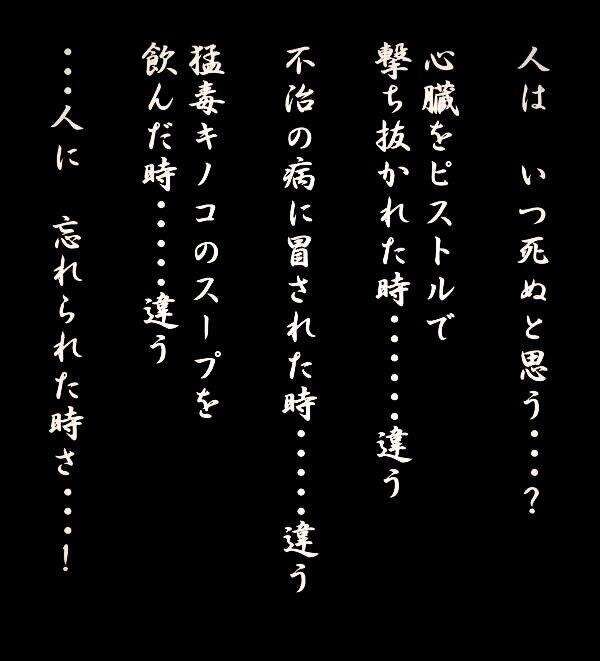 人は　いつ死ぬと思う・・・？
心臓をピストルで
撃ち抜かれた時・・・・・・違う
不治の病に冒された時・・・・・違う
猛毒キノコのスープを
飲んだ時・・・・・違う
・・・人に　忘れられた時さ・・・！